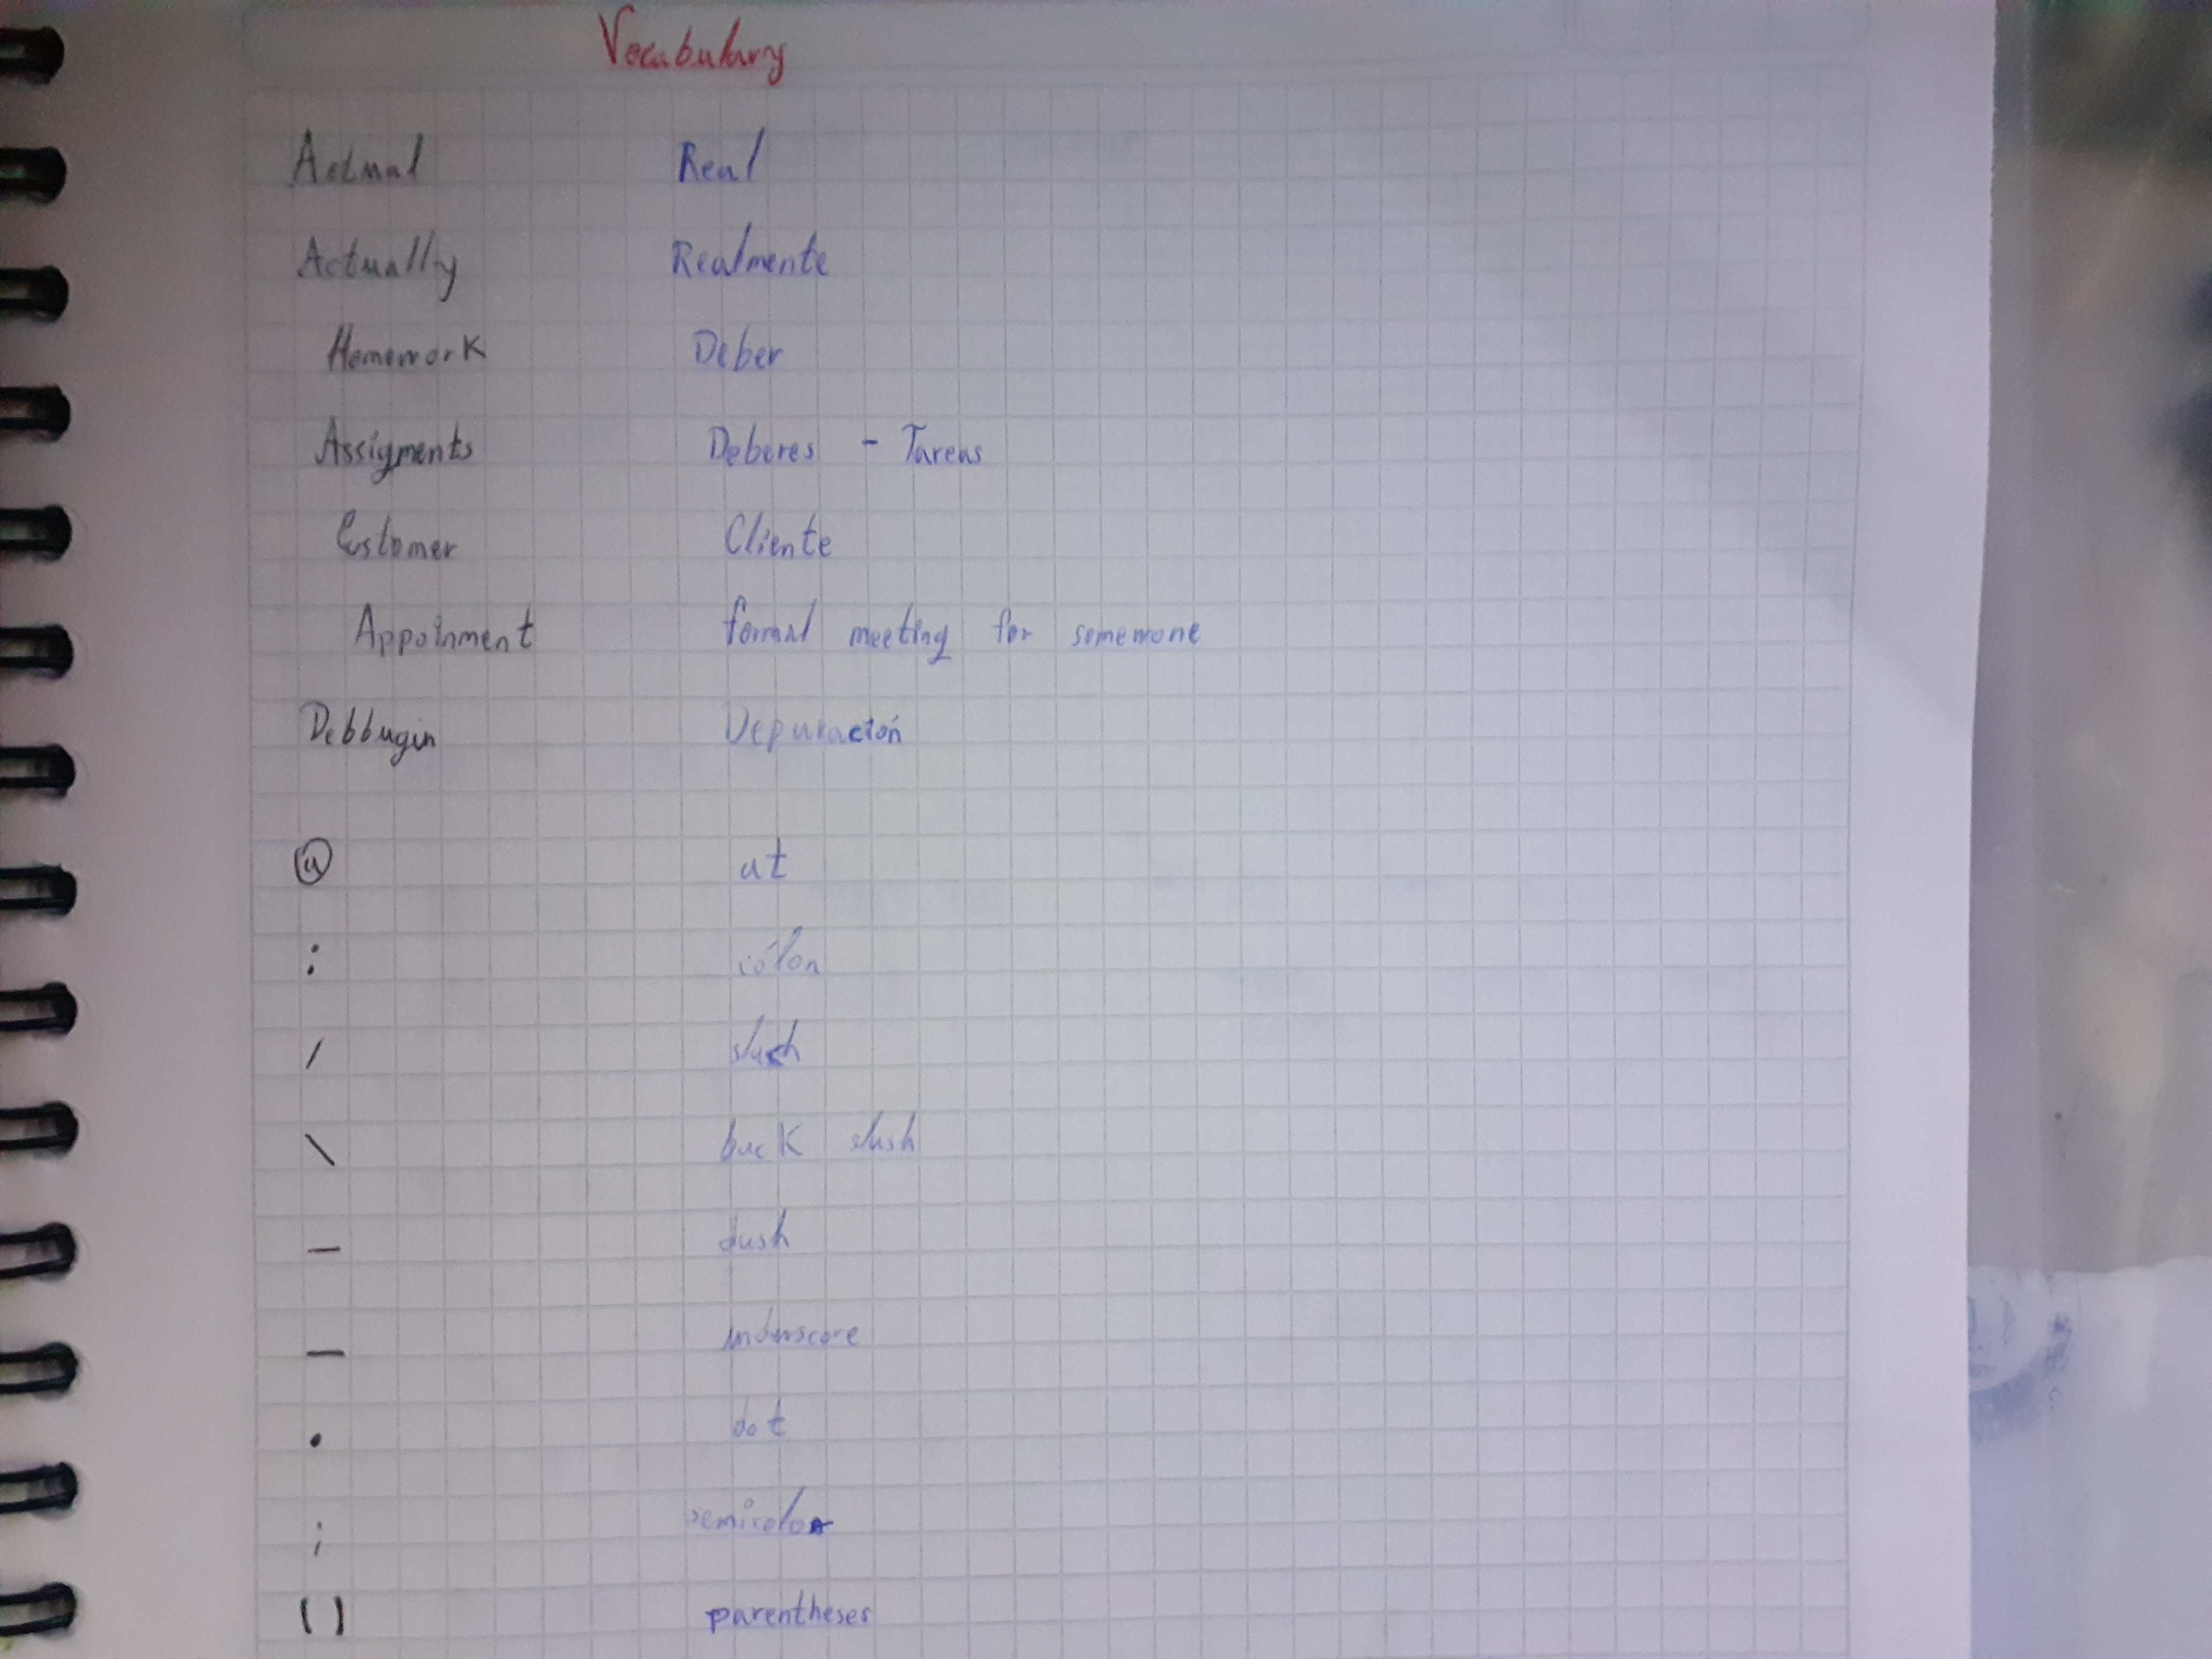 Vocabulary
Actual Real
Actually Realmente
Homework Deber
Assigments Deberes - Tareas
Customer Cliente
Appoinment formal meeting for somewone
Debbugin Depuración
@ at
: cólon
/ slash
\ back slash
- dash
_ underscore
. dot
; semicolon
( ) parentheses